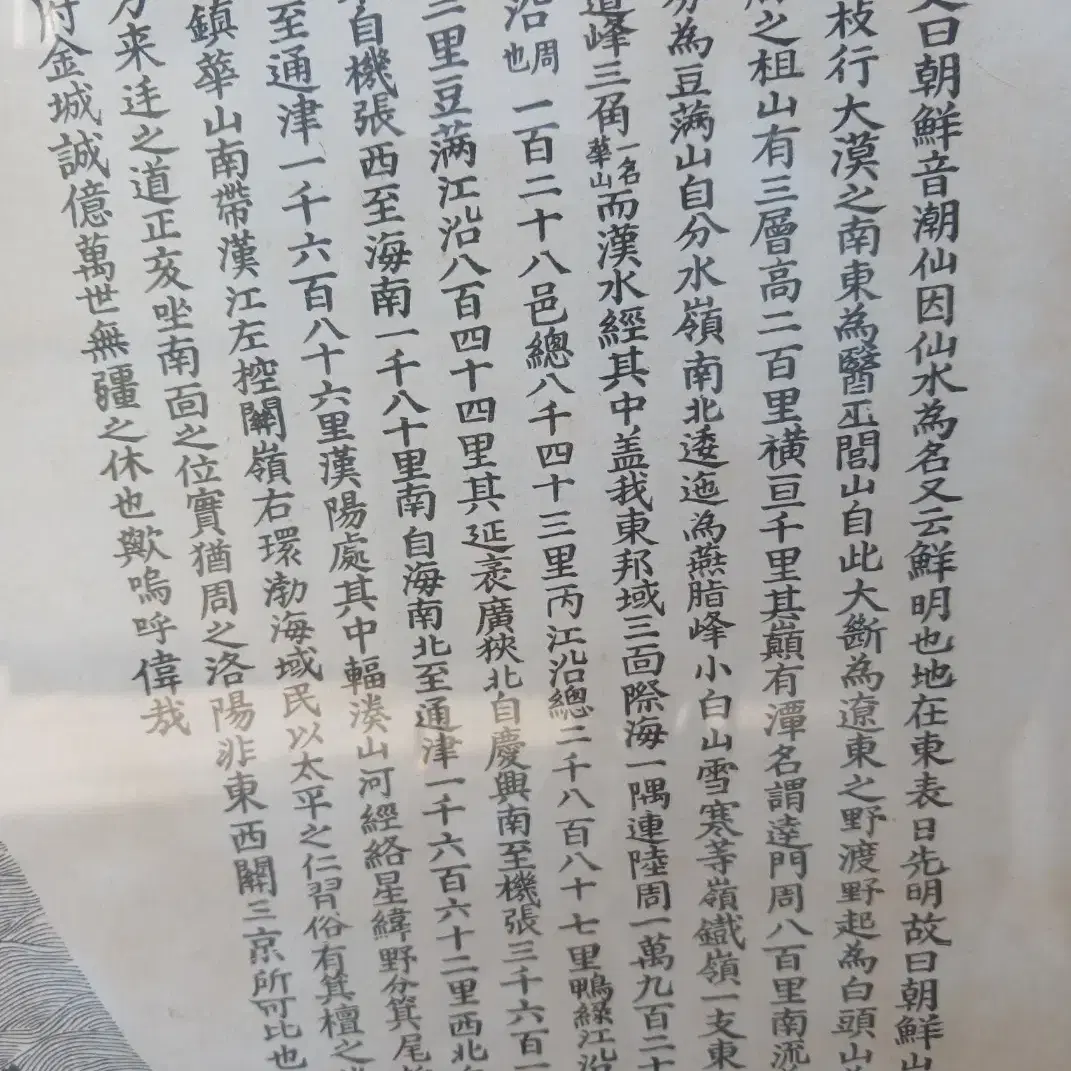 曰朝鮮音潮仙因仙水為名又云鮮明也地在東表日先明故曰朝鮮山
枝行大漠之南東為醫巫閭山自此大斷為遼東之野渡野起為白頭山
之祖山有三層高二百里橫亘千里其巔有潭名謂達門周八百里南流
為豆滿山自分水嶺南北逶迤為燕脂峰小白山雪寒等嶺鐵嶺一支東
道峰三角一名華山而漢水經其中盖我東邦域三面際海一隅連陸周一萬九百二十
沿周也一百二十八邑總八千四十三里丙江沿總二千八百八十七里鴨綠江沿
二里豆滿江沿八百四十四里其延袤廣狹北自慶興南至機張三千六百
自機張西至海南一千八十里南自海南北至通津一千六百六十二里西北
至通津一千六百八十六里漢陽處其中輻湊山河經絡星緯野分箕尾
鎮華山南帶漢江左控關嶺右環渤海域民以太平之仁習俗有箕檀之
来迋之道正亥坐南面之位實猶周之洛陽非東西關三京所可比也
金城誠億萬世無疆之休也歟嗚呼偉哉